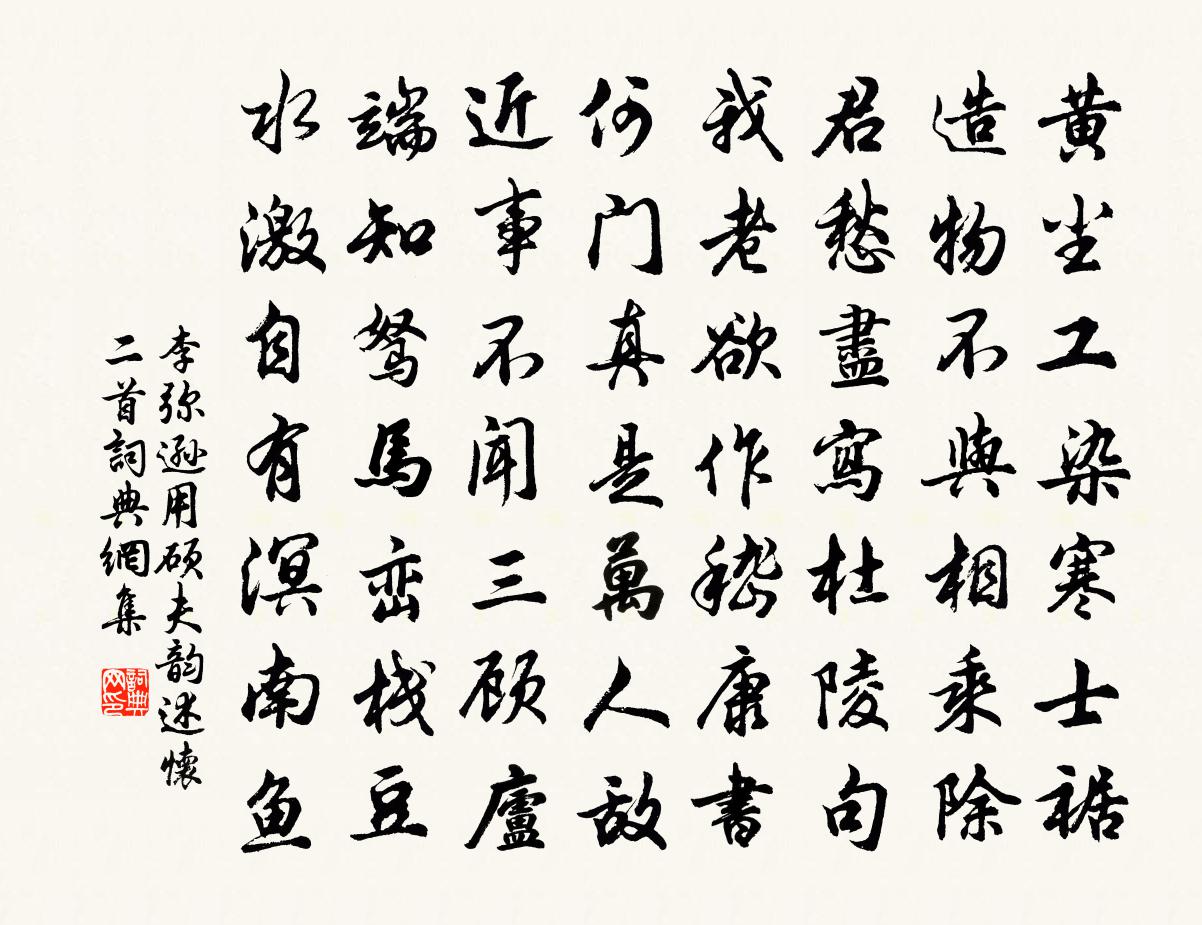 黄尘工染寒士裾
造物不與相乘除
君愁盡寫杜陵句
我老欲作嵇康書
何门真是萬人敌
近事不闻三顾廬
端知駑馬峦栈豆
水激自有溟南鱼
李弥遜用硕夫韵述懷
二首詞典網集
詞典网印